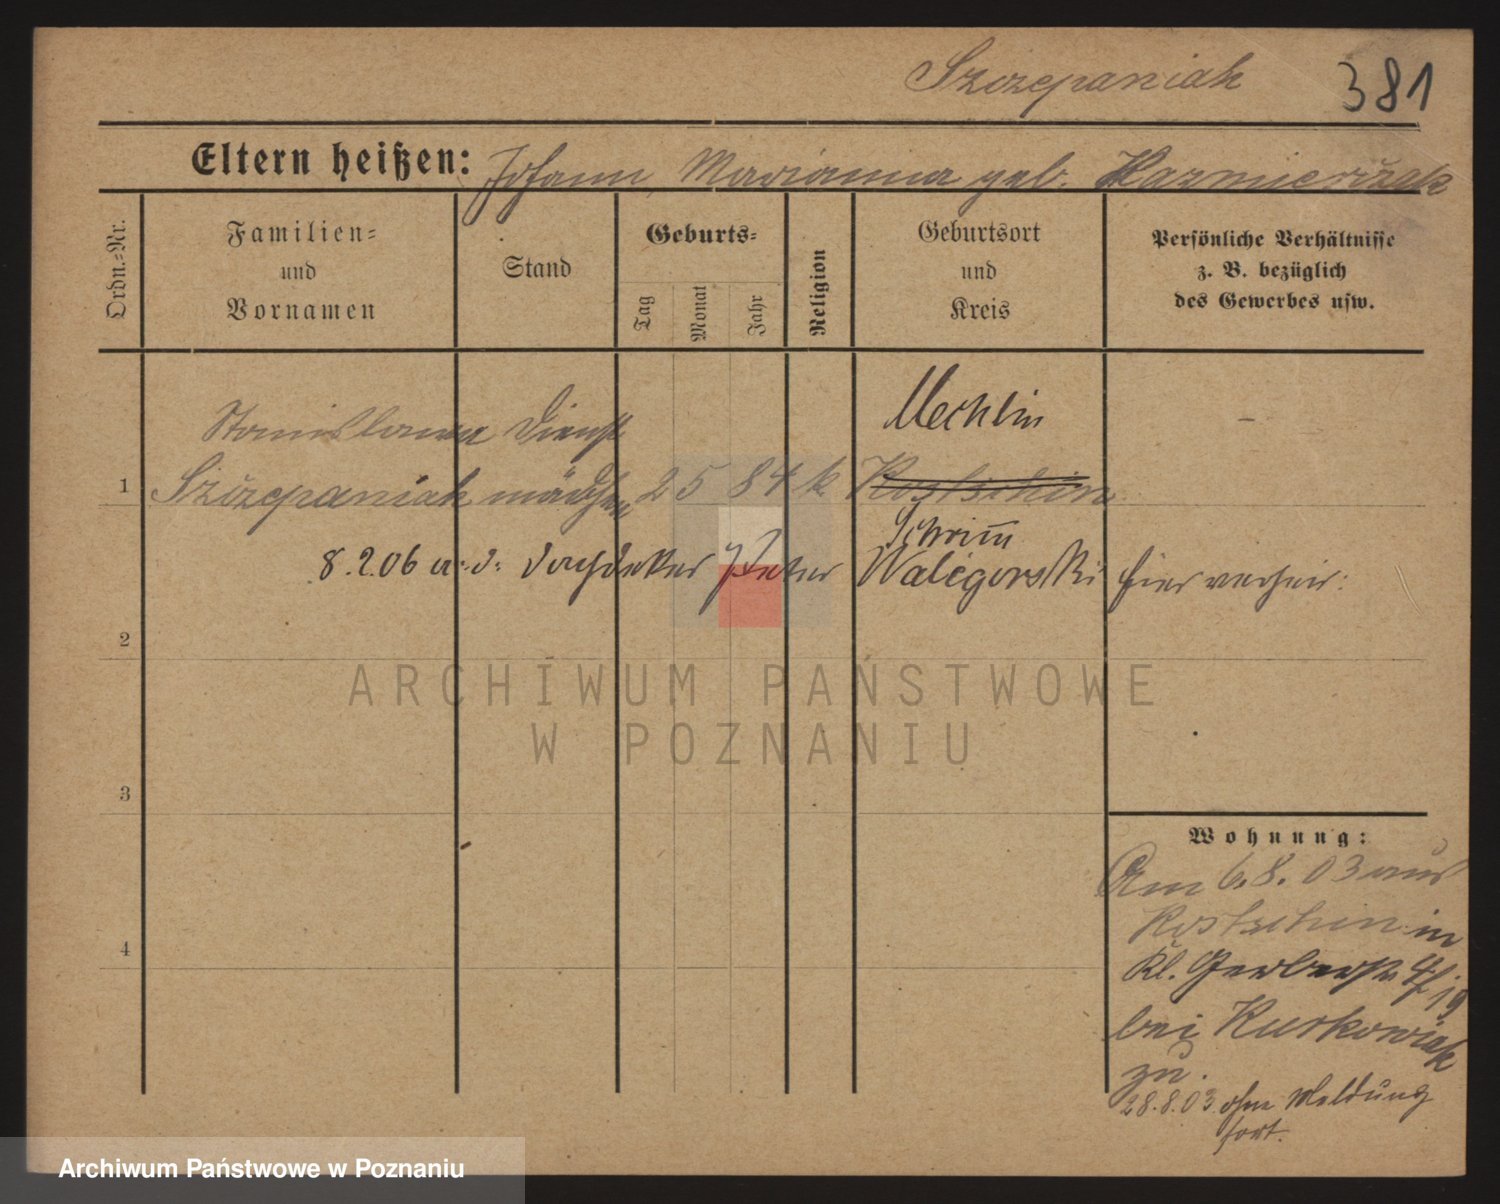 Szczepaniak 381
Eltern heißen: Johann, Marianna geb. Kazmierczak
Ordn.-Nr.
Familien-
und
Vornamen
Stand
Geburts-
Tag
Monat
Jahr
Religion
Geburtsort
und
Kreis
Persönliche Verhältnisse
z. B. bezüglich
des Gewerbes usw.
Mechlin
Stanislawa Dienst -
1 Szczepaniak mädchen 2 5 84 k Kostschin
Schrimm
8.2.06 a. d. Dachdecker Peter Waligorski hier verheir:
2
ARCHIWUM PAŃSTWOWE
W POZNANIU
3
Wohnung:
Am 6.8.03 aus
Kostschin in
4
Kl. Gerberstr. 4/19
bei Kurkowiak
zu.
28.8.03 ohne Meldung
fort.
Archiwum Państwowe w Poznaniu